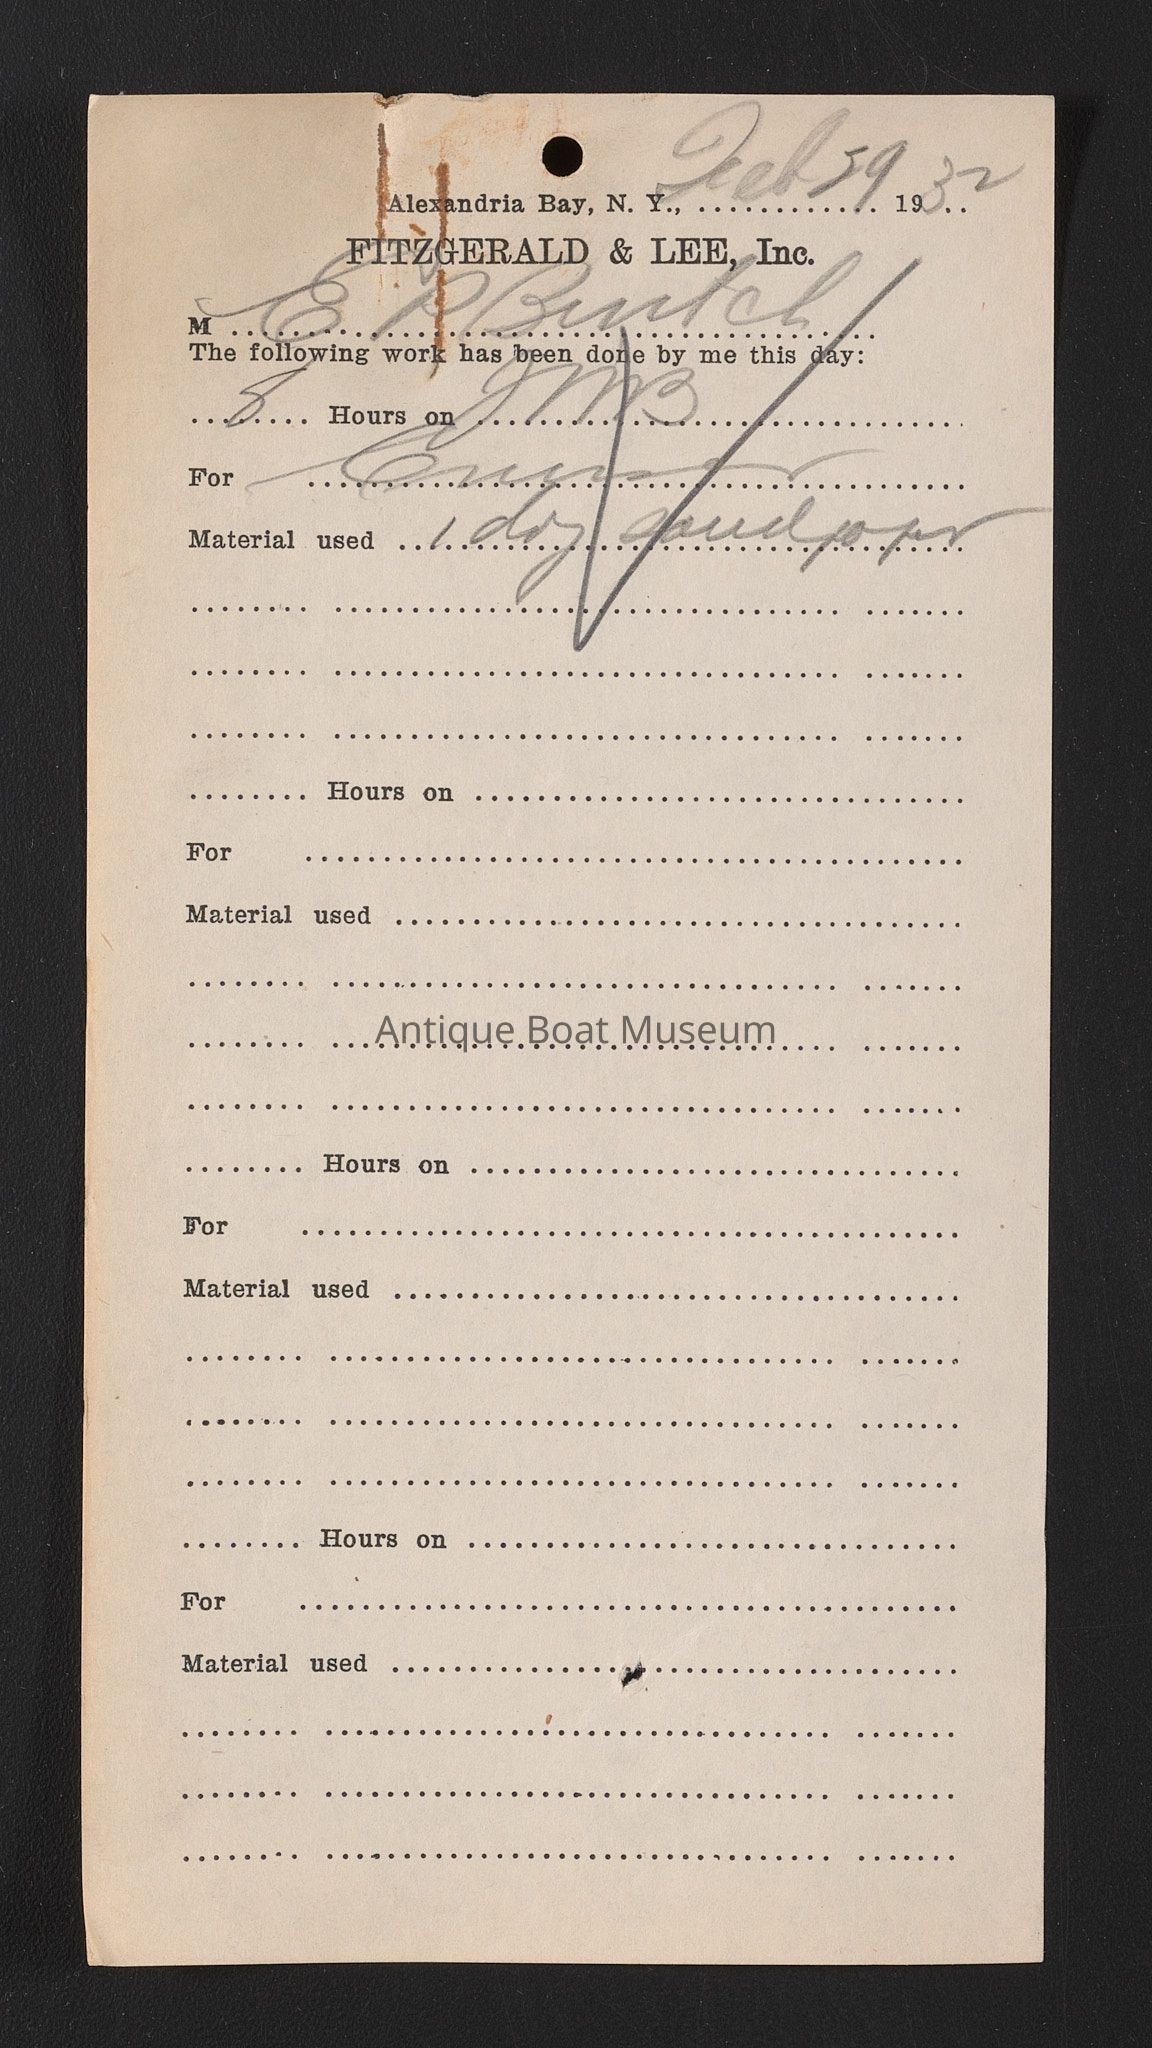 Feb 29 32
Alexandria Bay, N. Y., ............ 193..
FITZGERALD & LEE, Inc.
M E P
The following work has been done by me this day:
8 Hours on
For
Material used 1 day sandpaper
........ Hours on ................................
For ................................
Material used ................................
Antique Boat Museum
........ Hours on ................................
For ................................
Material used ................................
........ Hours on ................................
For ................................
Material used ................................